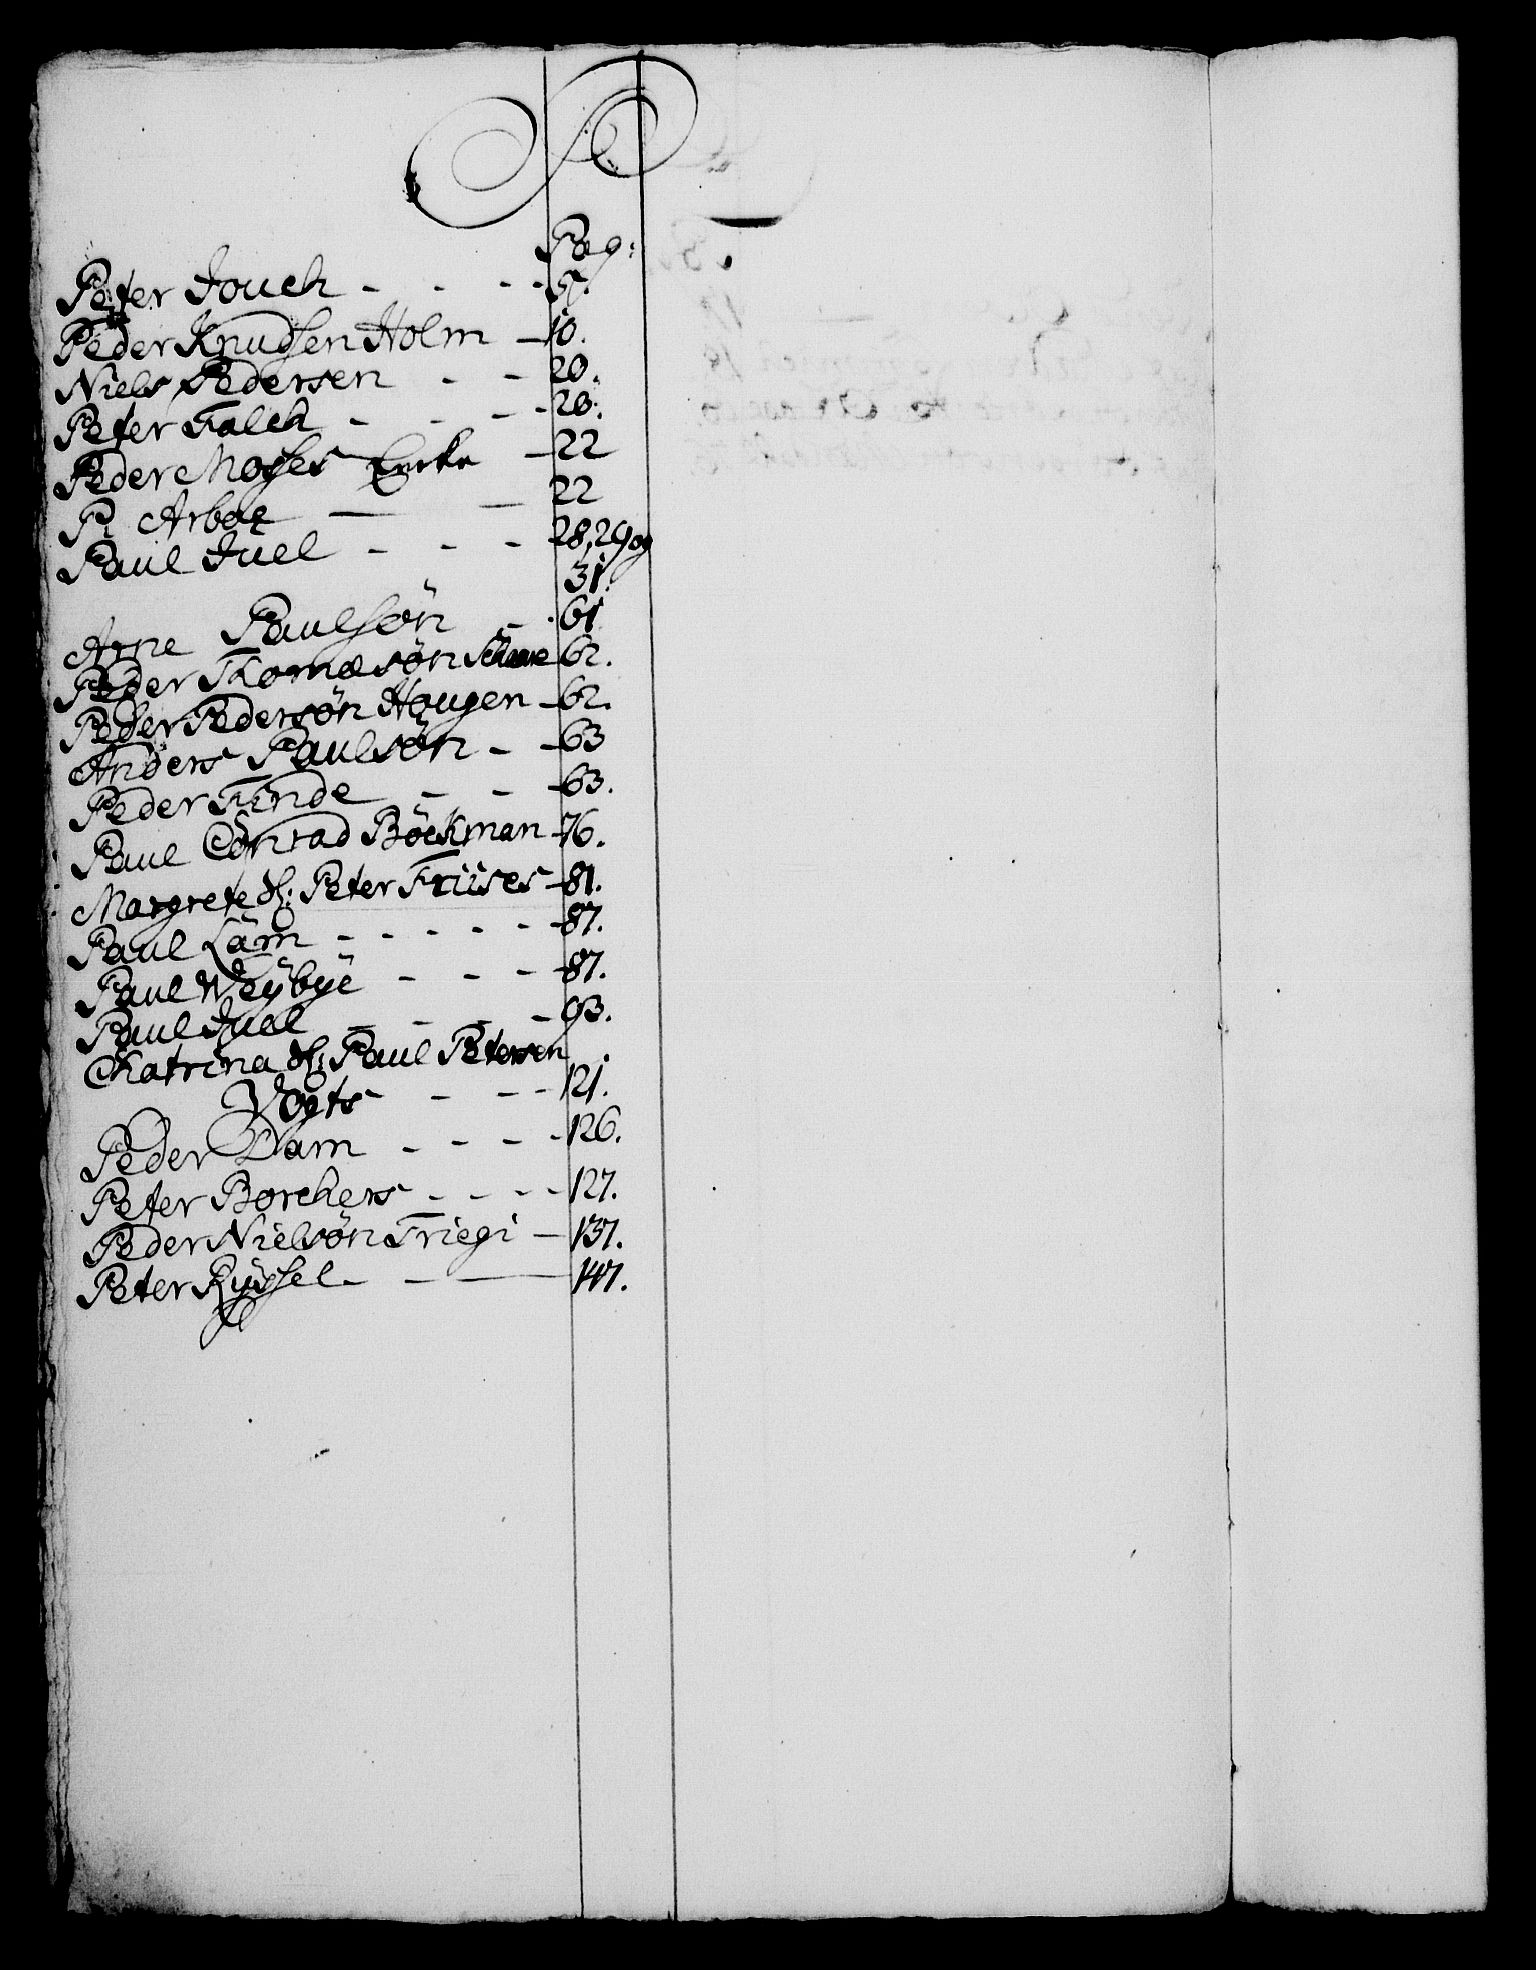 P
Pag:
Peter Jouch - - - - 5.
Peder Knudsen Holm - 10.
Niels Pedersen - - 20.
Peter Falch - - - - 20.
Peder Moses Encke - 22
P. Arboe - - 22
Paul Juel - - - 28, 29 og
31.
Arne Paulsøn - - 61
Peder Thomæsøn 62.
Peder Pedersøn Hougen - 62.
Anders Paulsøn - - 63
Peder Finde - - - 63.
Paul Conrad Böckman - 76.
Margrete Sl: Peter Friises - 81.
Paul Lam - - - - - - 87.
Paul Weÿbÿe - - - - 87.
Paul Juel - - - - 93.
Chatrina Sl: Paul Petersen
Vogts - - - - 121.
Peder Dam - - - - 126.
Peter Borchers - - - - 127.
Peder Nielsøn Friegi - 137.
Peter Rÿssel - - - 147.